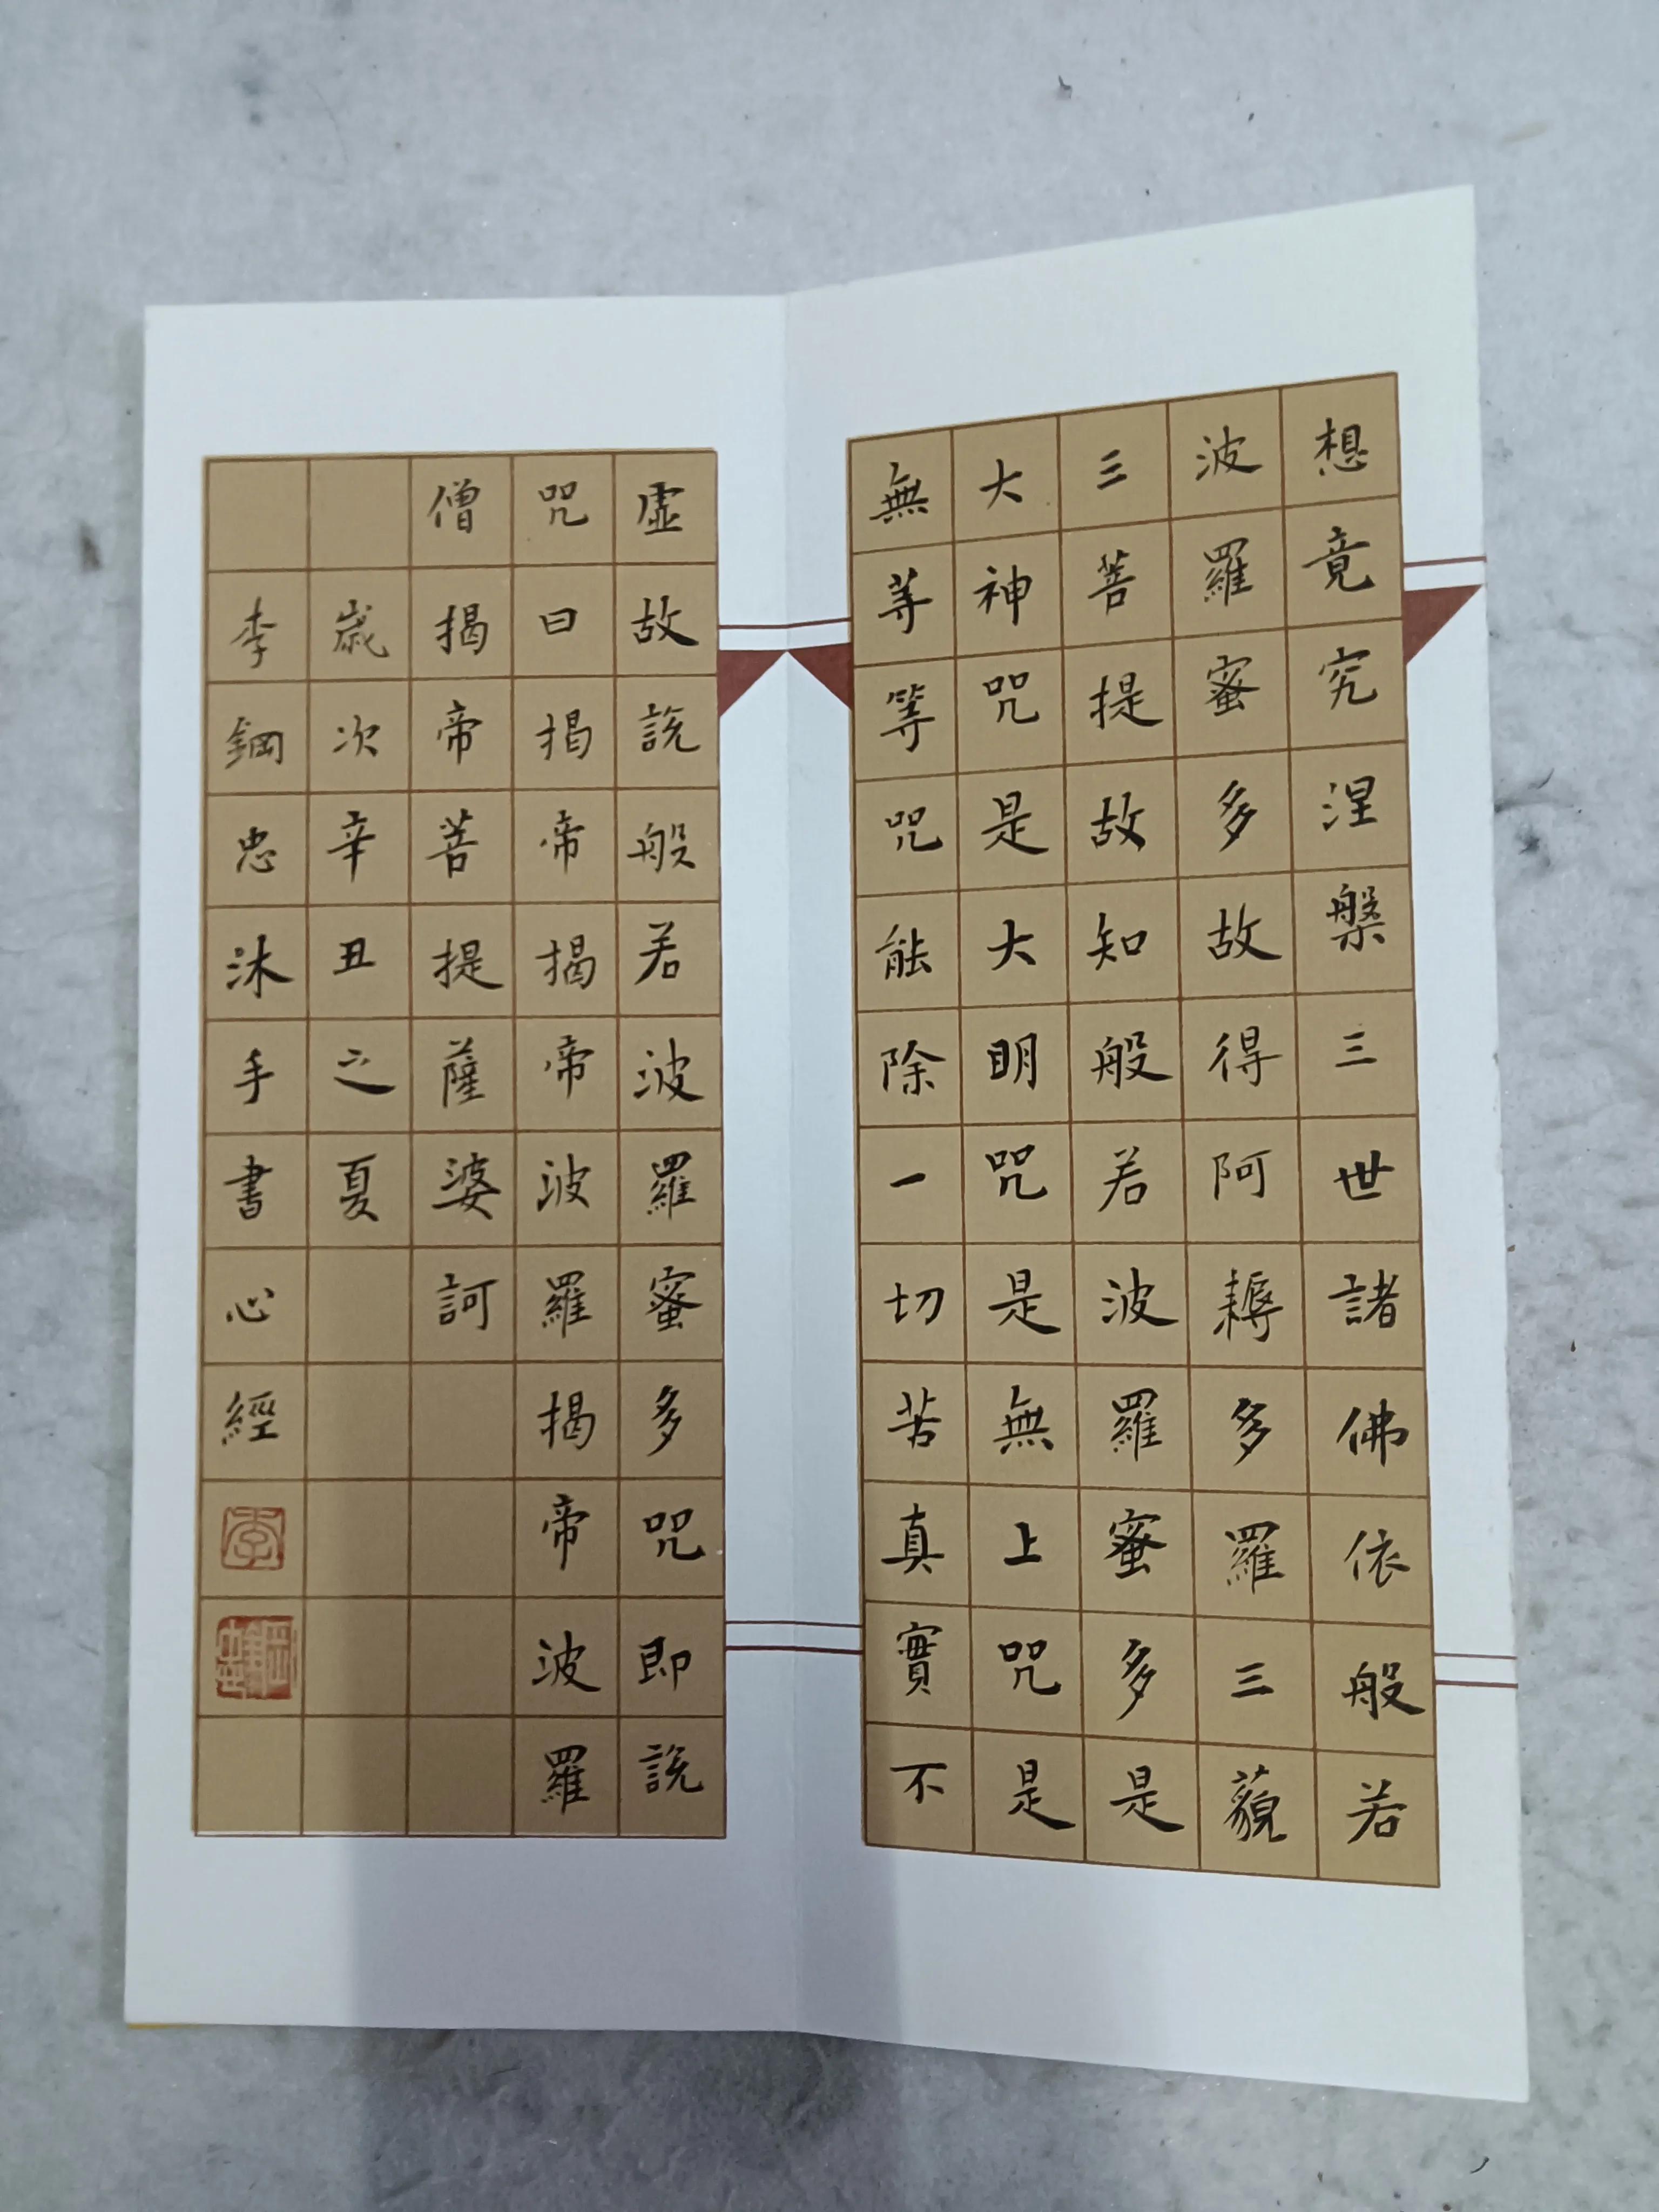 想竟究涅槃三世諸佛依般若
波羅蜜多故得阿耨多羅三藐
三菩提故知般若波羅蜜多是
大神咒是大明咒是無上咒是
無等等咒能除一切苦真實不
虛故說般若波羅蜜多咒即說
咒曰揭帝揭帝波羅揭帝波羅
僧揭帝菩提薩婆訶
歲次辛丑之夏
李鋼忠沐手書心經
李
鋼忠